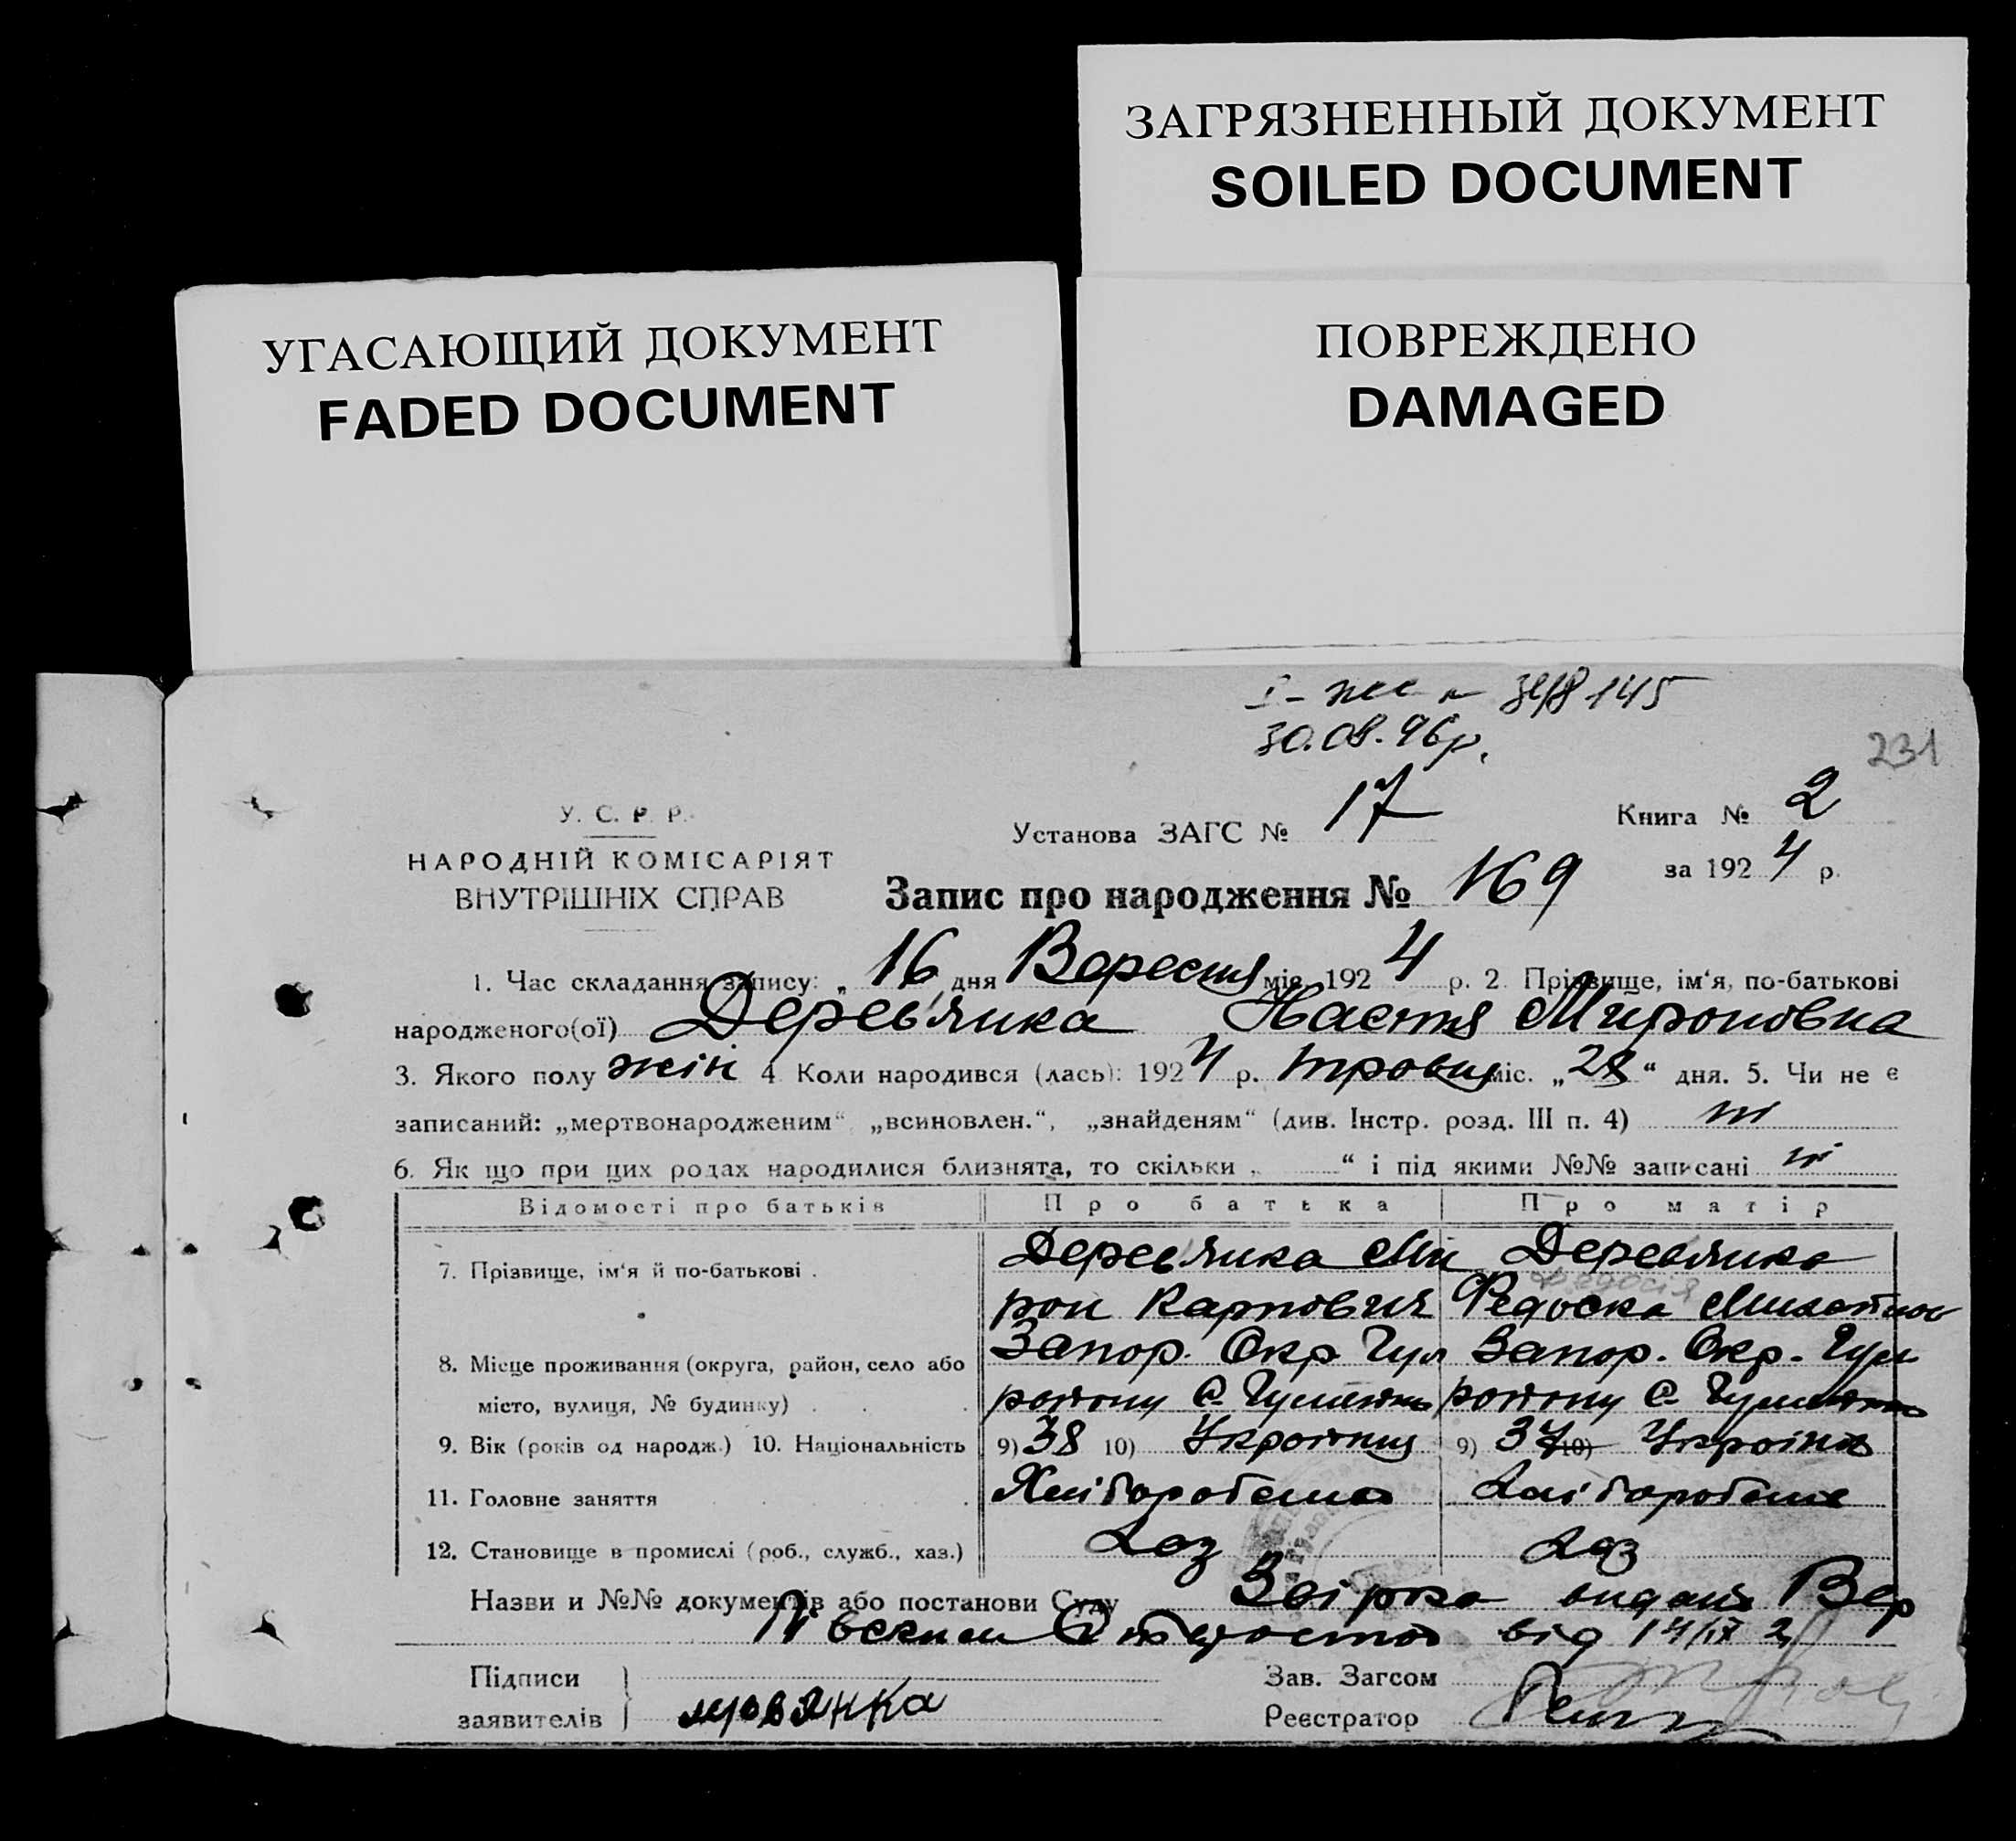 ЗАГРЯЗНЕННЫЙ ДОКУМЕНТ
SOILED DOCUMENT
УГАСАЮЩИЙ ДОКУМЕНТ
FADED DOCUMENT
ПОВРЕЖДЕНО
DAMAGED
145
30.08.96р.
231
У. С. Р. Р.
НАРОДНІЙ КОМІСАРІЯТ
ВНУТРІШНІХ СПРАВ
Установа ЗАГС № 17
Книга № 2
за 1924 р.
Запис про народження № 169
1. Час складання запису: „ 16 дня Вересня міс. 1924 р. 2. Прізвище, ім‘я, по-батькові
народженого(ої) Деревʼянка Настя Мироновна
3. Якого полу жін 4. Коли народився (лась): 1924 р. травня міс. „28“ дня. 5. Чи не є
записаний: „мертвонародженим“ „всиновлен.“, „знайденям“ (див. Інстр. розд. III п. 4) ні
6. Як що при цих родах народилися близнята, то скільки „ “ і під якими №№ записані ні
Відомості про батьків Про батька Про матір
7. Прізвище, ім‘я й по-батькові . Деревʼянка Ми Деревянка
рон Карпович Федоска
8. Місце проживання (округа, район, село або Запор. Окр. Гул Запор. Окр. Гул
місто, вулиця, № будинку) району С. району С.
9. Вік (років од народж.) 10. Національність 9) 38 10) Українець 9) 37 10) Українка
11. Головне заняття Хліборобство Хліборобство
12. Становище в промислі (роб., служб., хаз.) Хаз Хаз
Назви и №№ документів або постанови Суду видана Вер
від 14/IX
Підписи
заявителів
Зав. Загсом
Реєстратор